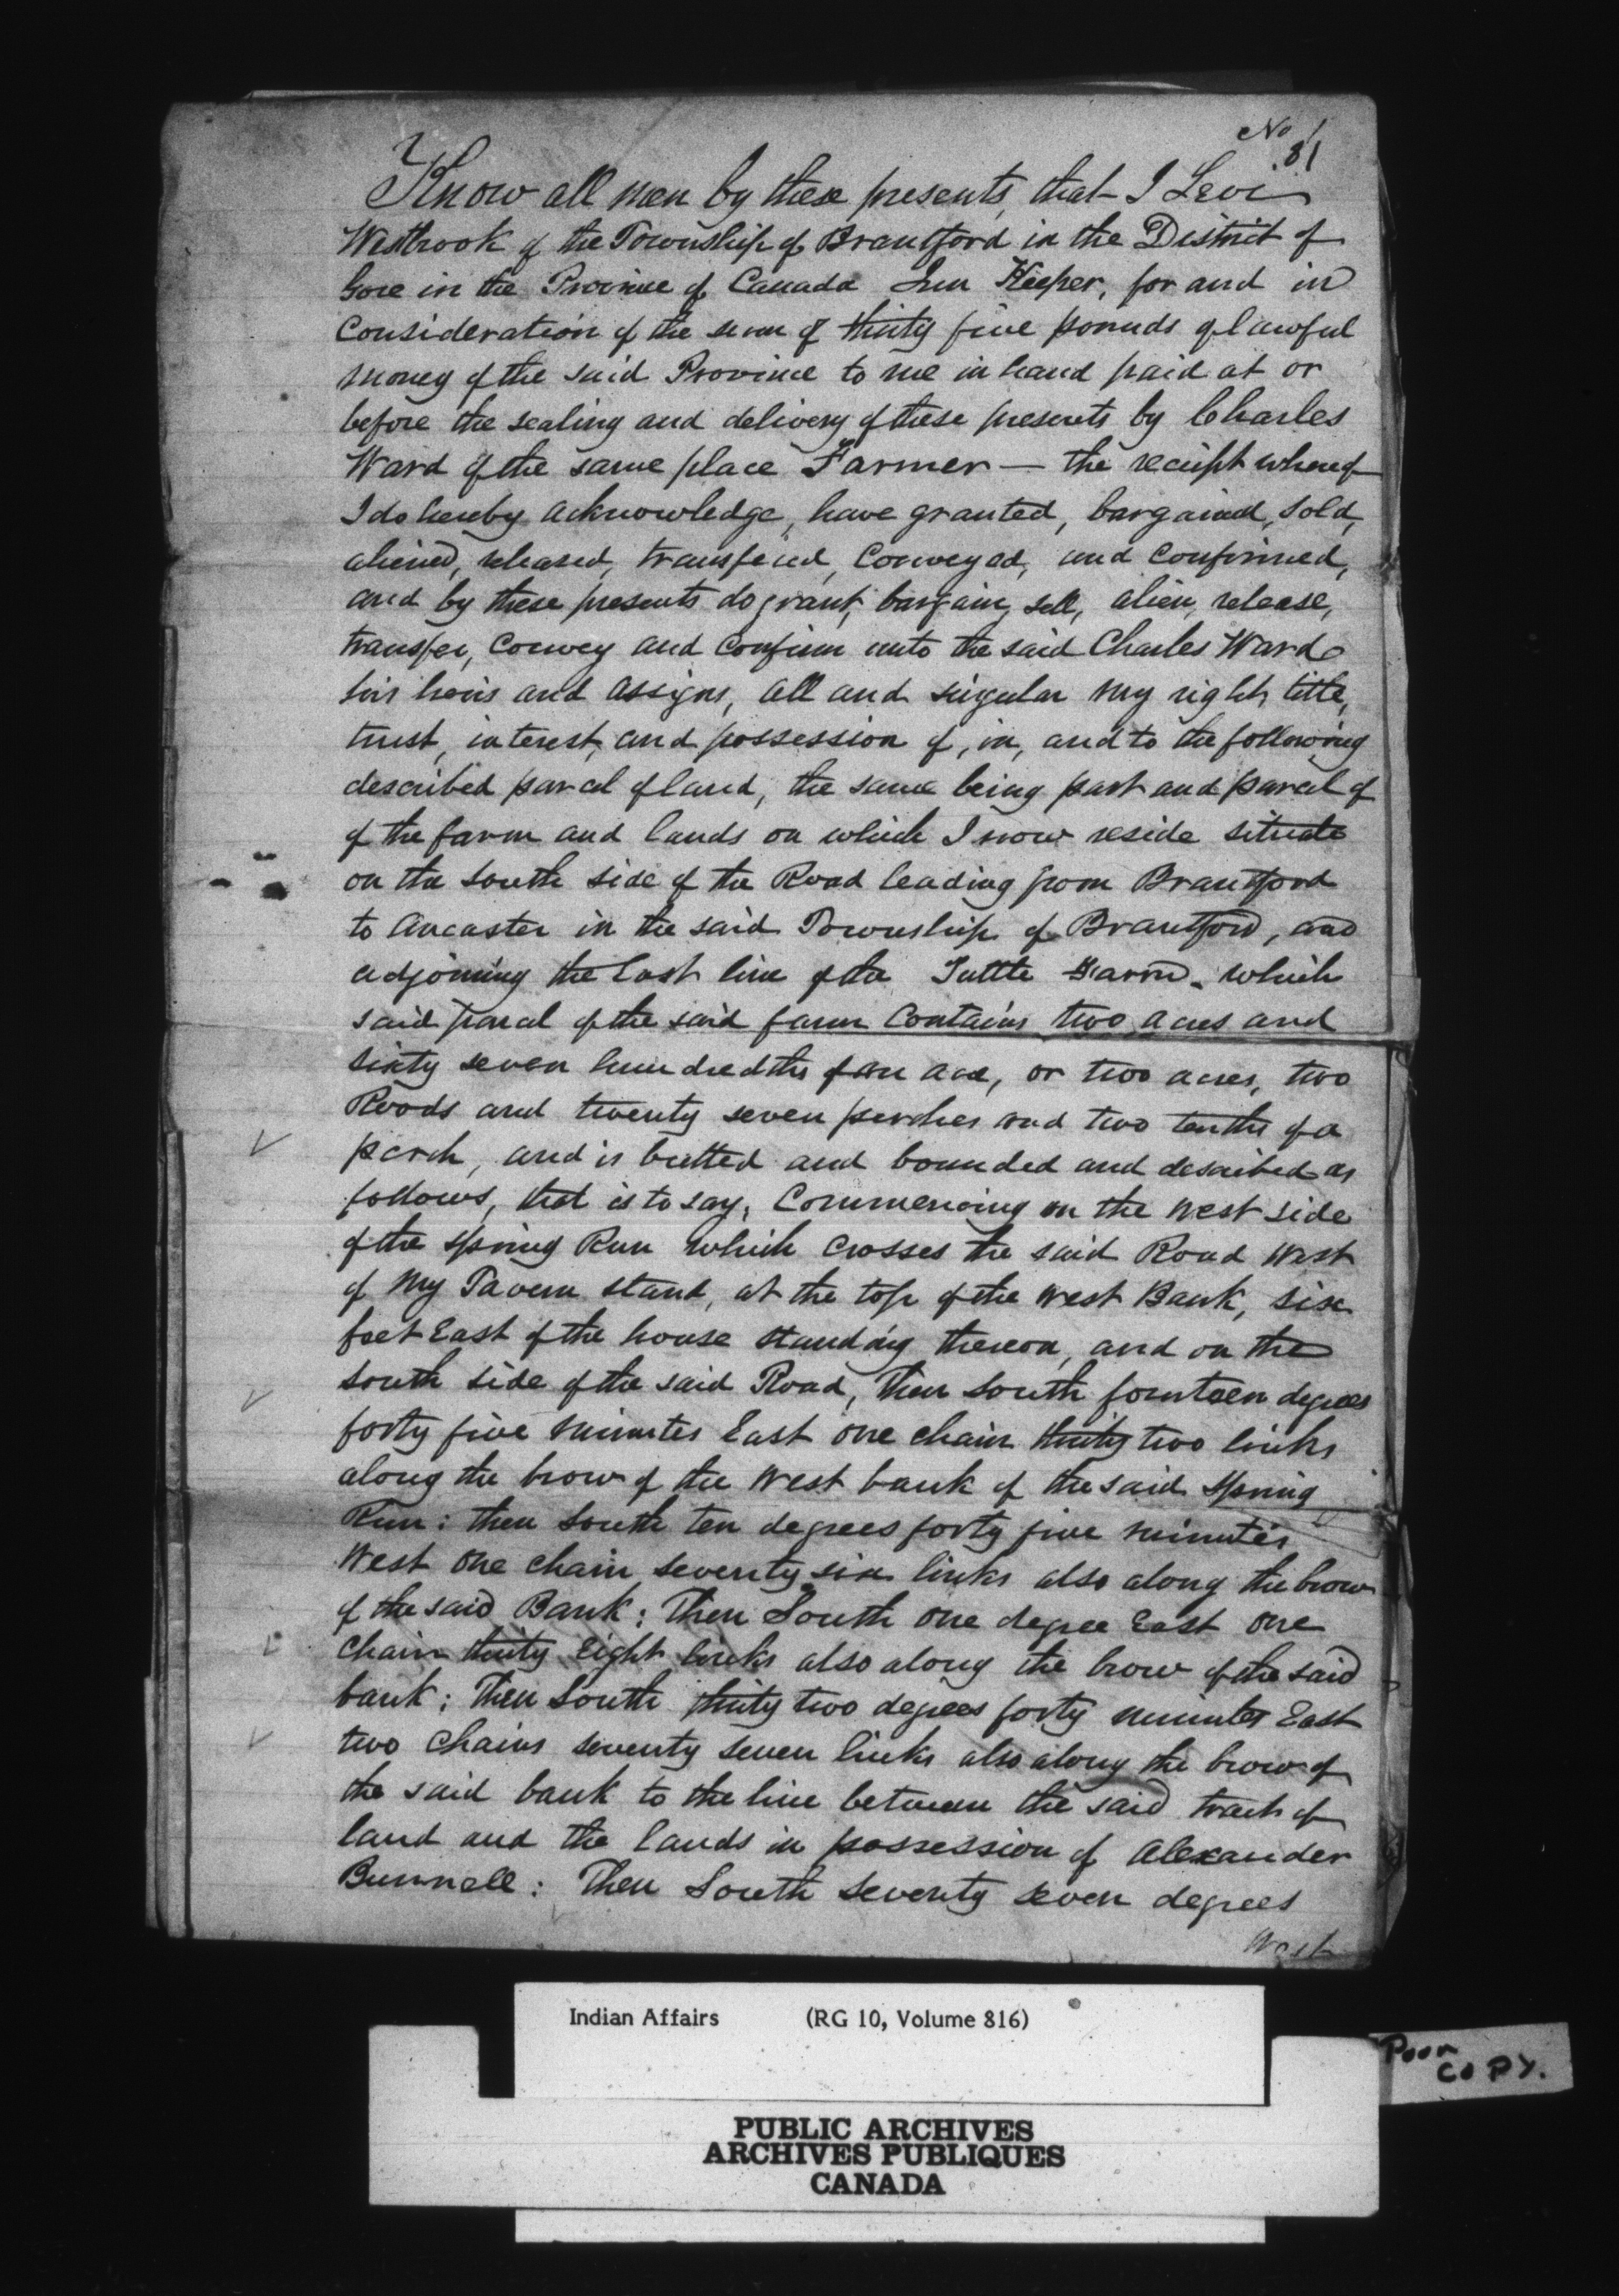 No 81
Know all men by these presents, that I Levi
Westbrook of the Township of Brantford in the District of
Gore in the Province of Canada Inn Keeper, for and in
Consideration of the sum of thirty five pounds of lawful
money of the said Province to me in hand paid at or
before the sealing and delivery of these presents by Charles
Ward of the same place Farmer — the receipt whereof
I do hereby acknowledge, have granted, bargained, sold,
aliened, released, transfered, Conveyed, and Confirmed,
and by these presents do grant, bargain, sell, alien, release,
transfer, Convey and Confirm unto the said Charles Ward
his heirs and assigns, all and singular my right, title,
trust, interest, and possession of, in, and to the following
described parcel of land, the same being part and parcel of
of the farm and lands on which I now reside situate
on the south side of the Road leading from Brantford
to Ancaster in the said Township of Brantford, and
adjoining the East line of the Tuttle Farm. which
said parcel of the said farm Contains two acres and
sixty seven hundredths of an acre, or two acres, two
Roods and twenty seven perches and two tenths of a
perch, and is butted and bounded and described as
follows, that is to say, Commencing on the West side
of the spring Run which crosses the said Road West
of my Tavern stand, at the top of the West Bank, six
feet East of the house standing thereon, and on the
south side of the said Road, Then South fourteen degrees
forty five minutes East one chain thirty two links
along the brow of the West bank of the said spring
Run: then South ten degrees forty five minutes
West one chain seventy six links also along the brow
of the said Bank: Then South one degree East one
Chain thirty eight links also along the brow of the said
bank: Then South thirty two degrees forty minutes East
two chains seventy seven links also along the brow of
the said bank to the line between the said tract of
land and the lands in possession of Alexander
Bunnell: Then South seventy seven degrees
West
Indian Affairs (RG 10, Volume 816)
Poor
COPY.
PUBLIC ARCHIVES
ARCHIVES PUBLIQUES
CANADA